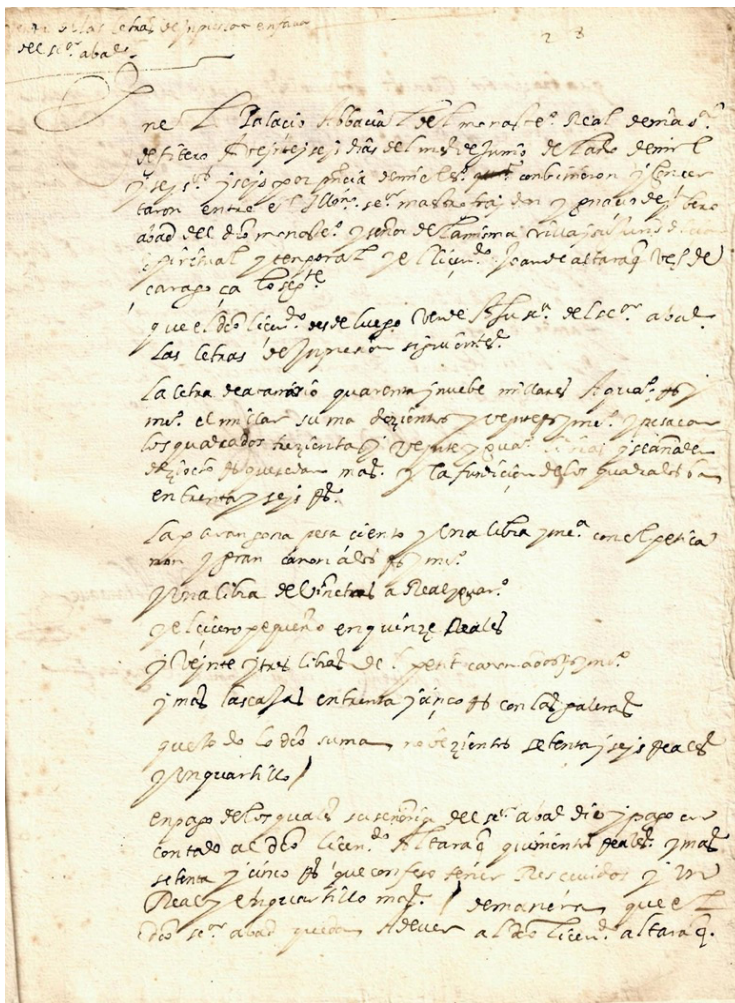 de las letras de Inpresion en favor
del sor abad
28
En el Palacio Abbacial del monasteo Real de nra sra
de fitero A veinte i seis dias del mes de Junio del año de mil
y seyscos y seys por prencia de mi el esno convinieron y concer
taron entre el Illmo señor maestro fray don ygnacio de ybero
abad del dho monasteo y señor de la misma villa y su Jurisdicion
spiritual y temporal y el licendo Joan de altaraq veso de
caragoça lo sigte
que el dho licendo desde luego vende A su sa del sor abad
las letras de Inpresion siguientes
La letra de atanasio quarenta y nuebe millares A quatro Rs y
mo el millar suma dozientos y veynte y mo y pesaron
los quadrados trezientas y veynte y quatro libras y se añaden
diziocho Rs que se dan mas y la fundicion de los quadrados
en trenta y seys Rs
La parangona pesa ciento y una libra y ma con el peti ca
non y gran canon a dos Rs y mo
y una libra de viñetas a Real y quaro
y el cicero pequeño en quinze Reales
y veynte y tres libras de petit canon a dos Rs y mo
y mas las caxas en trenta y cinco Rs con las galeras
que todo lo dho suma nobezientos setenta y seys Reales
y un quartillo
en pago de los quales su señoria del sor abad dio y pago en
contado al dho licendo Altaraq quinientos Reales y mas
setenta y cinco Rs que confeso tener Rescevidos y un
Real y un quartillo mas de manera que el
dho sor abad queda A dever al dho licendo altaraq